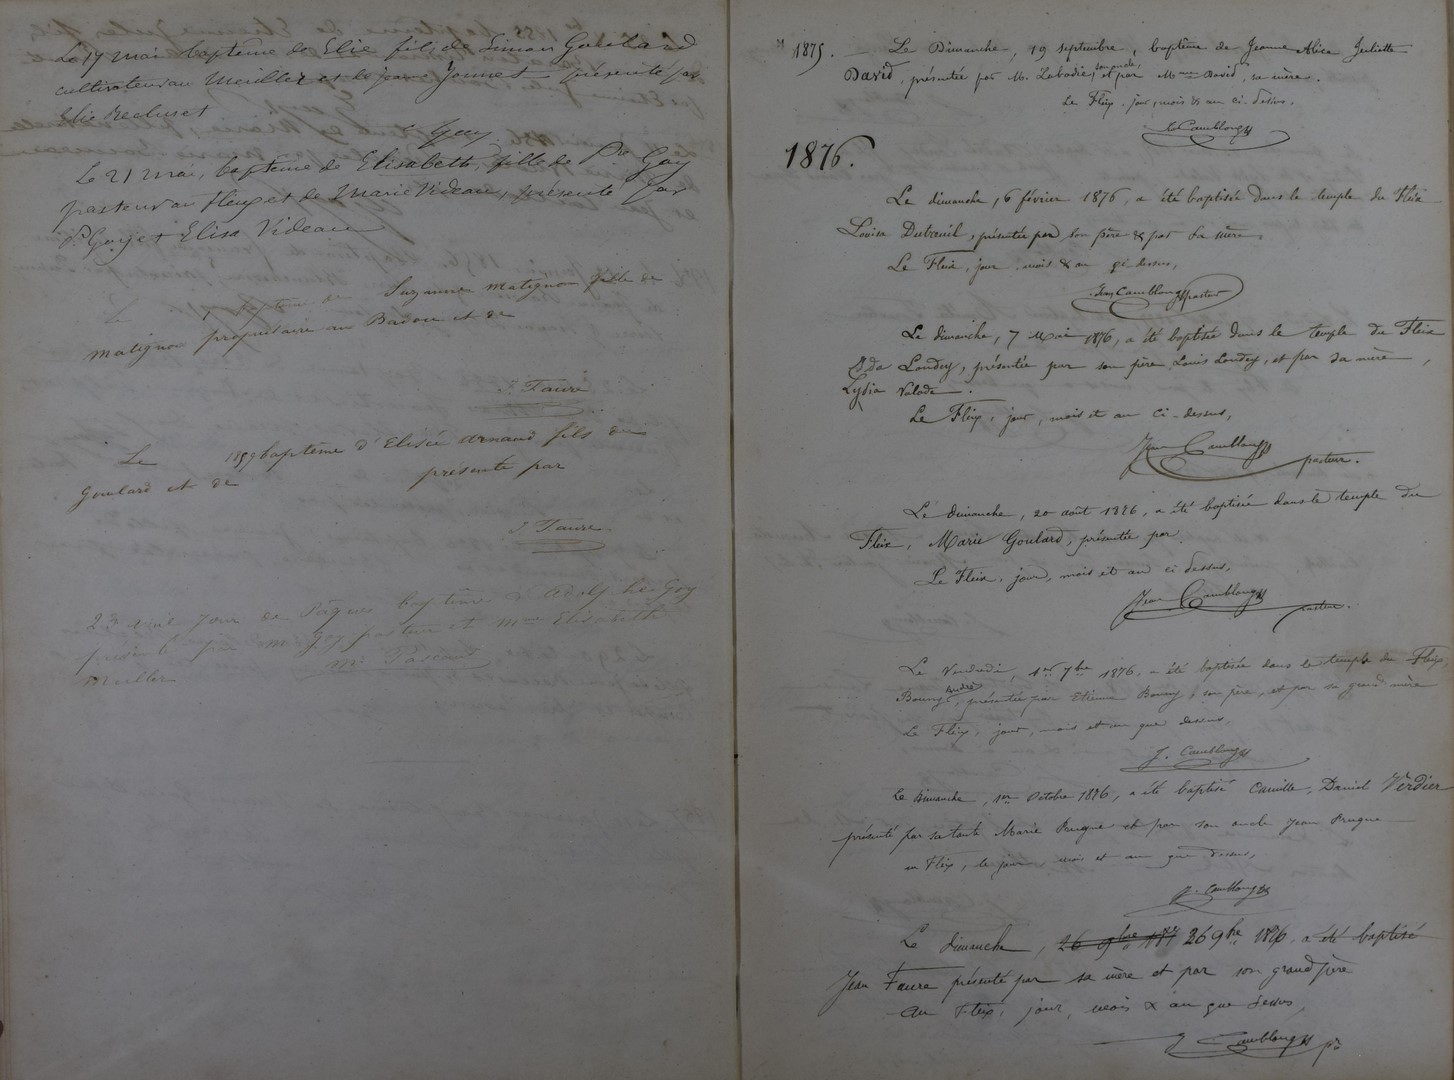 Le 17 mai baptême de Elie fils de Simon Goulard
cultivateur au Meiller et de Jeanne Jonnet présenté par
Elie Recluset
Goy
Le 21 mai, baptême de Elisabeth, fille de Pre Goy
pasteur au Fleix et de Marie Videau, présenté par
Pre Goy et Elisa Videau
Le baptême de Suzanne Matignon fille de
Matignon propriétaire au Badou et de
J. Faure
Le 1859 baptême d'Elisée Arnaud fils de
Goulard et de présenté par
J. Faure
23 avril jour de Pâques baptême d'Adolphe Goy
présenté par Mr Goy pasteur et Mme Elisabeth
Muller
1875. Le Dimanche, 19 septembre, baptême de Jeanne Alice Juliette
David, présentée par M. Labadie, son oncle, et par Mme David, sa mère.
Le Fleix, jour, mois & an ci-dessus,
J. Camblong
1876.
Le dimanche, 6 février 1876, a été baptisée dans le temple du Fleix
Louise Dubreuil, présentée par son père & par sa mère,
Le Fleix, jour, mois & an ci-dessus,
Jean Camblong pasteur
Le dimanche, 7 Mai 1876, a été baptisée dans le temple du Fleix
Ida Londey, présentée par son père, Louis Londey, et par sa mère,
Lydia Valade.
Le Fleix, jour, mois et an ci-dessus,
Jean Camblong
pasteur.
Le dimanche, 20 août 1876, a été baptisée dans le temple du
Fleix, Marie Goulard, présentée par
Le Fleix, jour, mois et an ci dessus,
Jean Camblong
pasteur.
Le Vendredi, 1er 7bre 1876, a été baptisée dans le temple du Fleix,
Bourny André, présentée par Etienne Bourny, son père, et par sa grand mère
Le Fleix, jour, mois et an que dessus,
J. Camblong
Le Dimanche, 1er Octobre 1876, a été baptisé Camille, Daniel Verdier
présenté par sa tante Marie Brugue et par son oncle Jean Brugue
au Fleix, le jour, mois et an que dessus,
J. Camblong
Le dimanche, 26 9bre 187 26 9bre 1876, a été baptisé
Jean Faure présenté par sa mère et par son grand père
Au Fleix, jour, mois & an que dessus,
J. Camblong pr